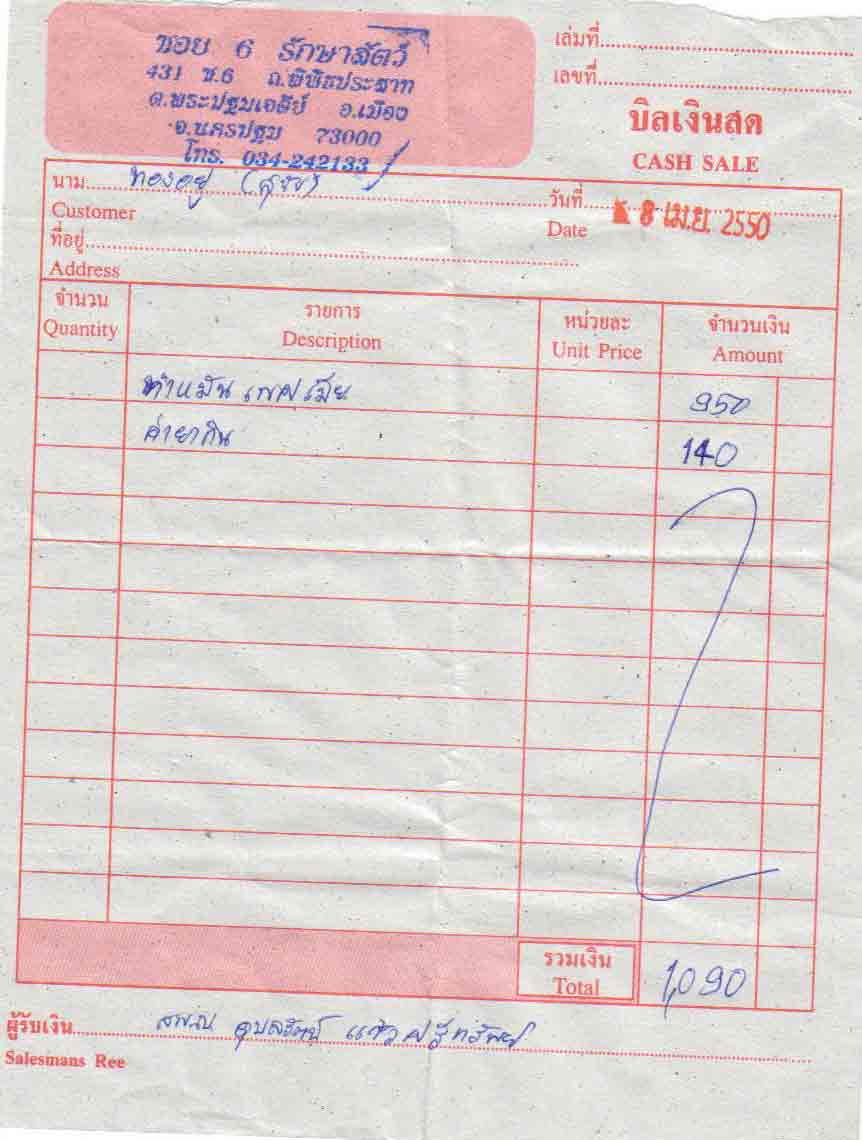 ซอย 6 รักษาสัตว์
431 ซ.6 ถ.พิพิธประสาท
ต.พระปฐมเจดีย์ อ.เมือง
จ.นครปฐม 73000
โทร. 034-242133
เล่มที่
เลขที่
บิลเงินสด
CASH SALE
นาม ทองอยู่
Customer
วันที่ 8 เม.ย. 2550
Date
ที่อยู่
Address
จำนวน รายการ หน่วยละ จำนวนเงิน
Quantity Description Unit Price Amount
ทำหมัน เพศเมีย 950
ค่ายากิน 140
รวมเงิน
Total 1,090
ผู้รับเงิน สพ.ญ. อุบลรัตน์
Salesmans Ree